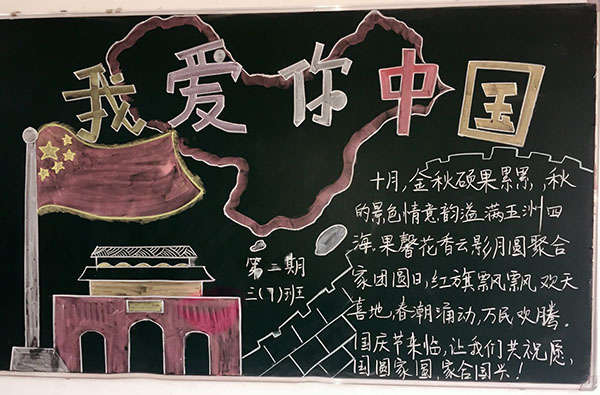 我爱你中国
第二期
三(7)班
十月,金秋硕果累累,秋
的景色情意韵溢满五洲四
海.果馨花香云影月圆聚合
家团圆日,红旗飘飘,欢天
喜地,春潮涌动,万民欢腾。
国庆节来临,让我们共祝愿,
国圆家圆,家合国兴!